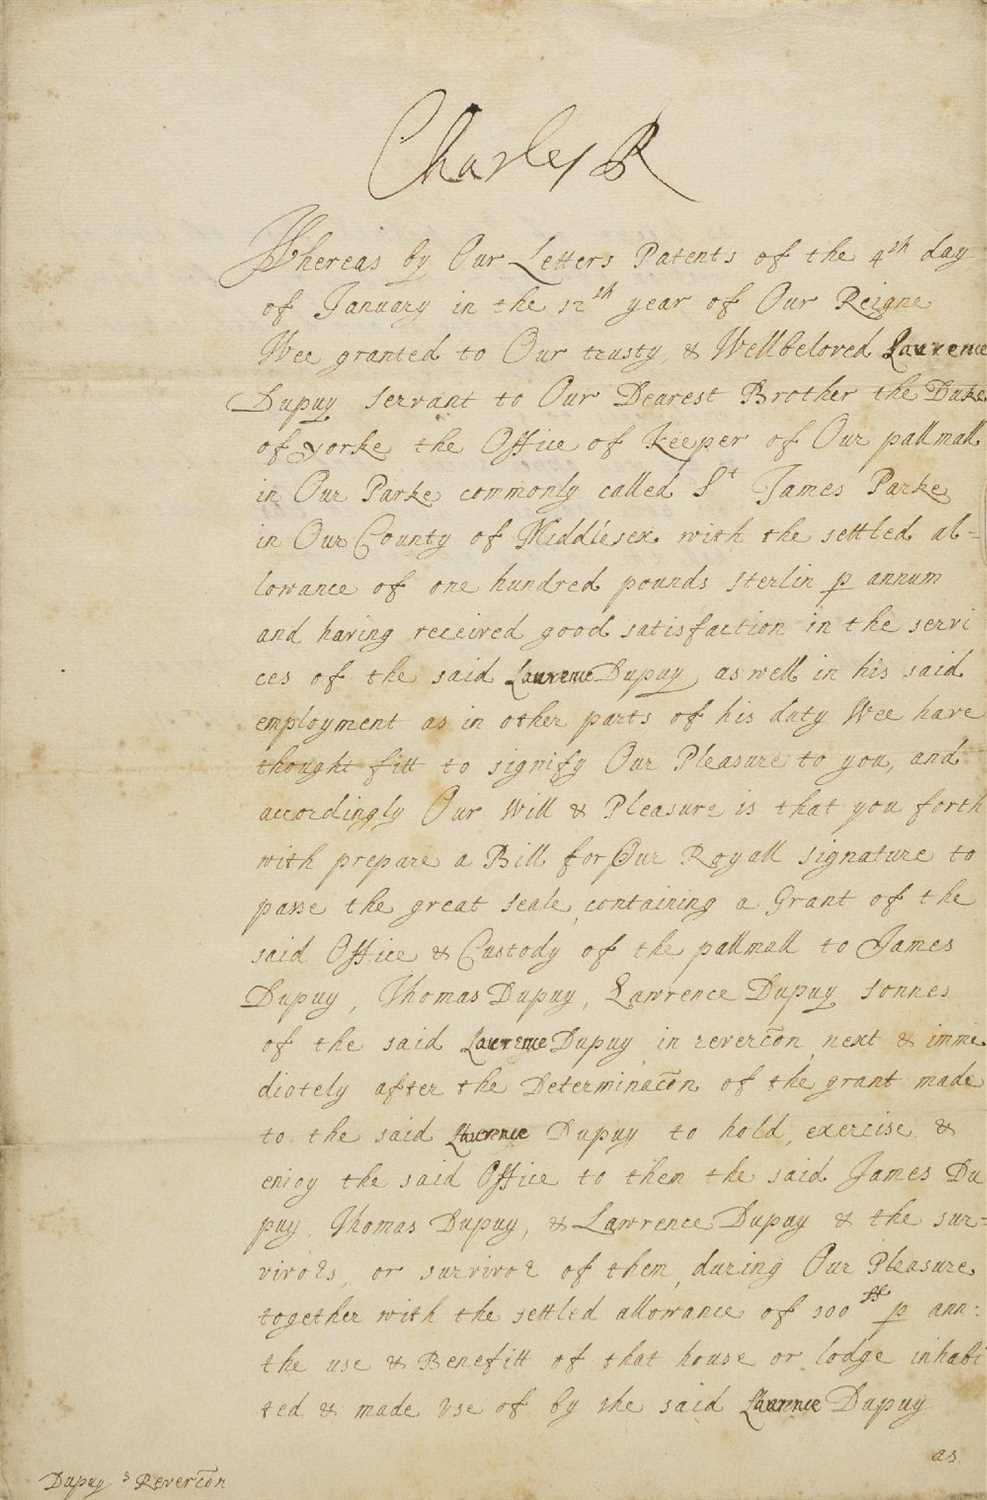 Charles R
Whereas by Our Letters Patents of the 4th day
of January in the 12th year of Our Reigne
Wee granted to Our trusty & Wellbeloved Lawrence
Dupuy servant to Our Dearest Brother the Duke
of yorke the Office of Keeper of Our pallmall
in Our Parke commonly called St James Parke
in Our County of Middlesex with the settled al=
lowance of one hundred pounds sterlin p annum
and having received good satisfaction in the servi
ces of the said Laurence Dupuy as well in his said
employment as in other parts of his duty Wee have
thought fitt to signify Our Pleasure to you, and
accordingly Our Will & Pleasure is that you forth
with prepare a Bill for Our Royall signature to
passe the great seale containing a Grant of the
said Office & Custody of the pallmall to James
Dupuy, Thomas Dupuy, Lawrence Dupuy sonnes
of the said Lawrence Dupuy in revercon next & imme
diotely after the Determinacon of the grant made
to the said Laurence Dupuy to hold, exercise &
enioy the said Office to them the said James Du
puy Thomas Dupuy, & Lawrence Dupuy & the sur=
vivors, or survivor of them, during Our Pleasure
together with the settled allowance of 100ll p ann:
the use & Benefitt of that house or lodge inhabi
ted & made vse of by the said Laurence Dupuy
as
Dupuy s Revercon